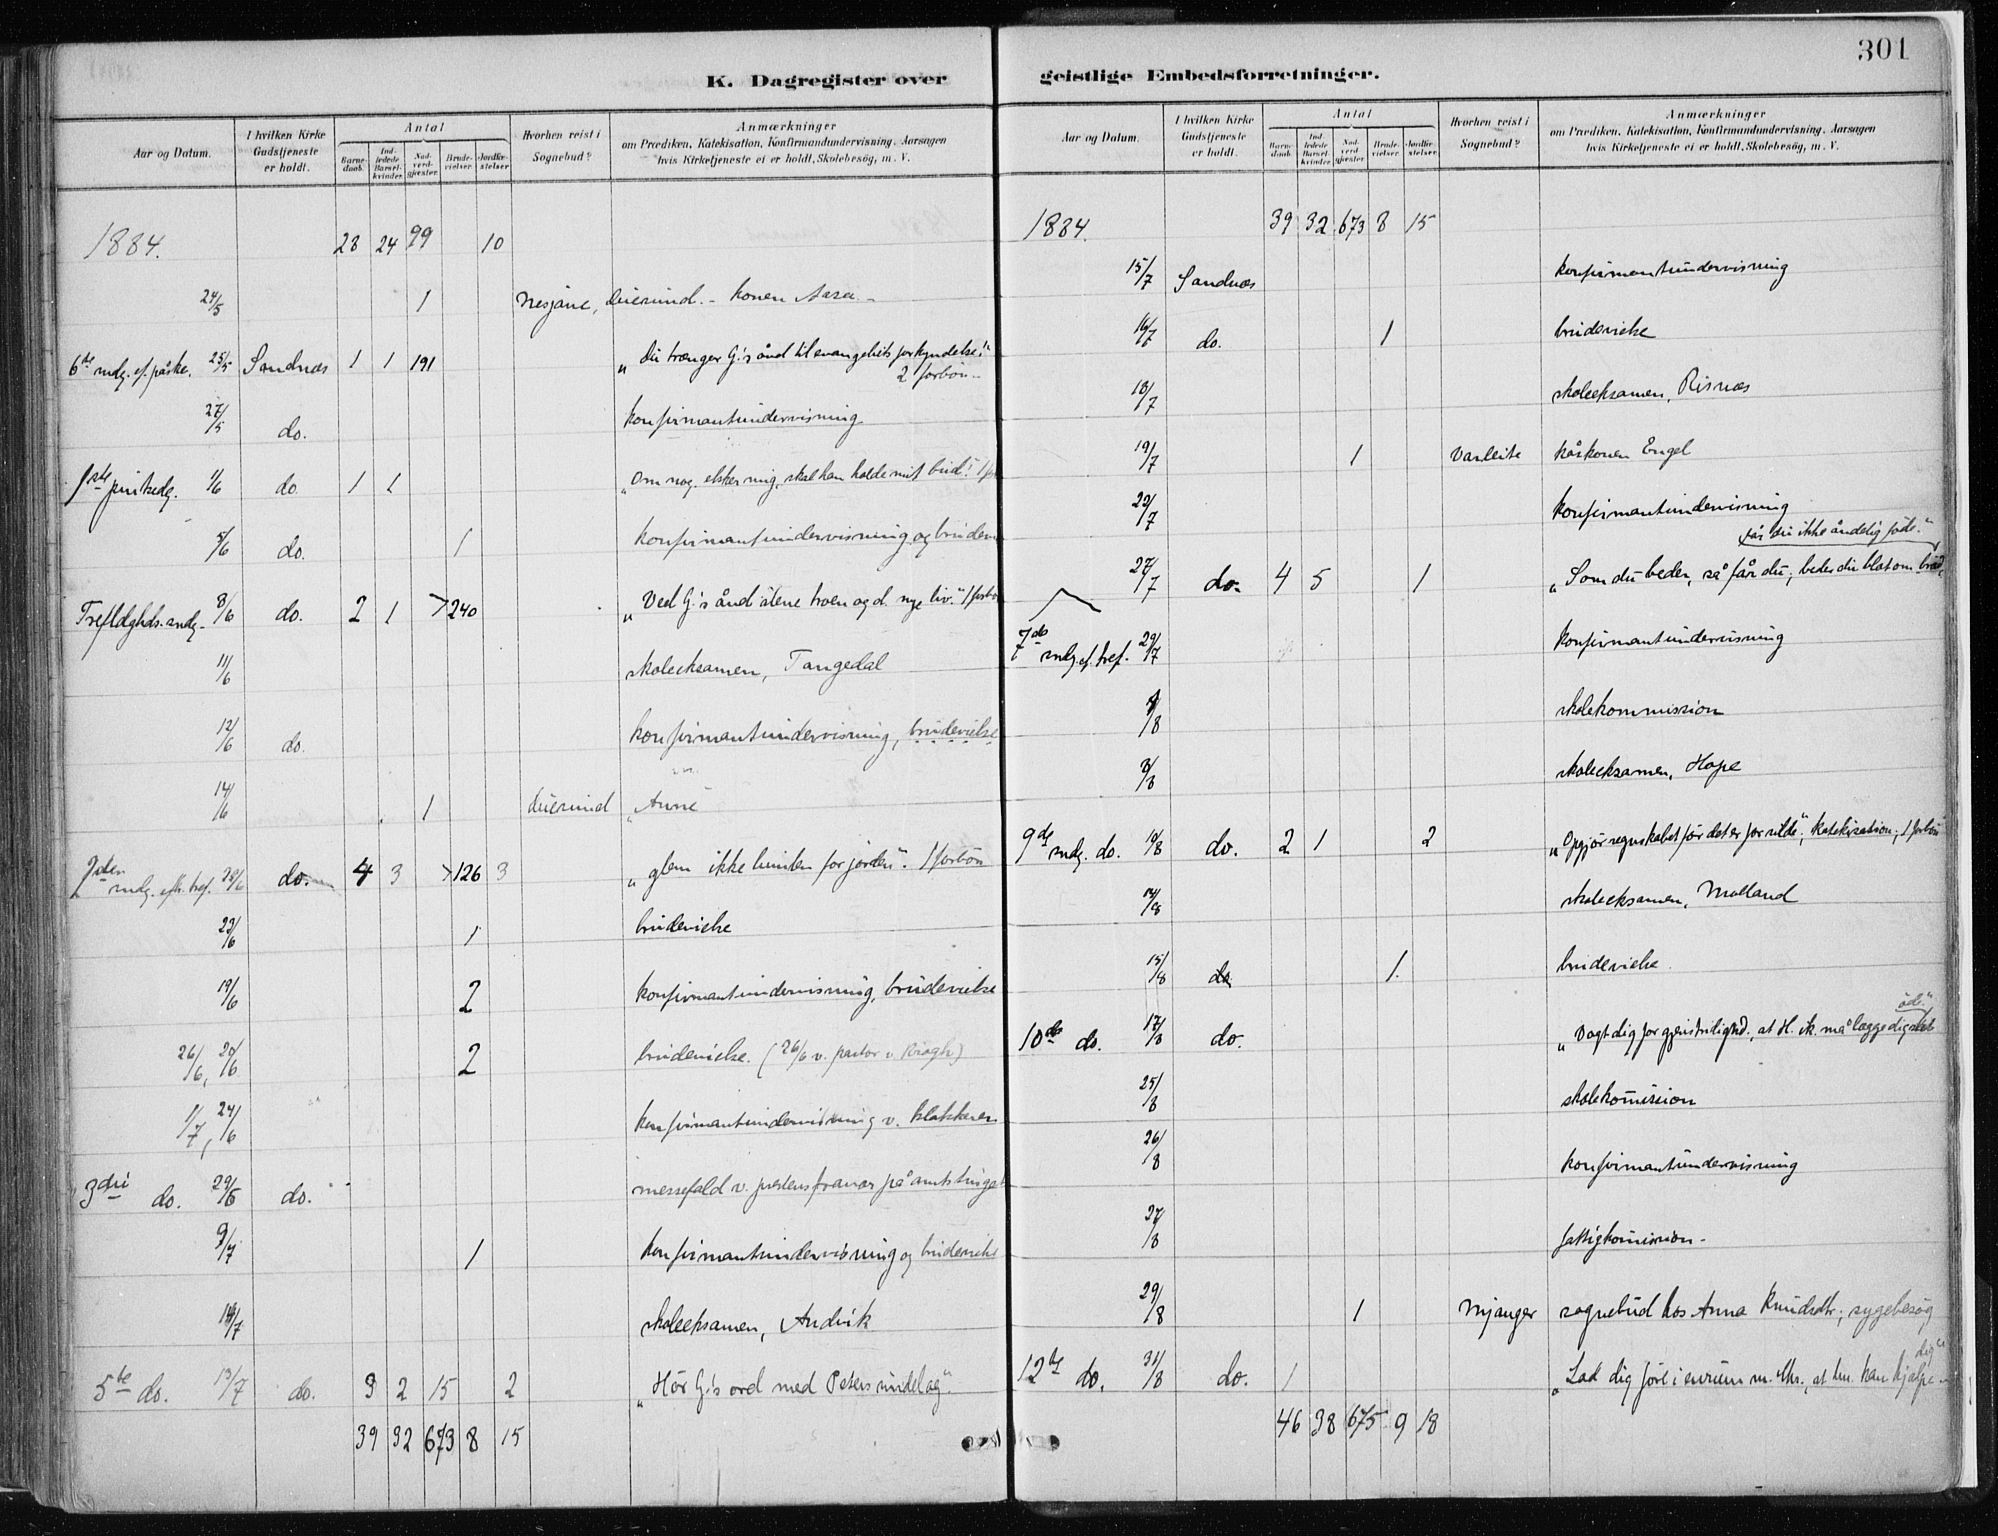 301
K. Dagregister over geistlige Embedsforretninger.
Aar og Datum.
I hvilken Kirke Gudstjeneste er holdt.
Antal
Barnedaab.
Indledede Barselkvinder.
Nadverdgjæster.
Brudevielser.
Jordfæstelser.
Hvorhen reist i Sognebud?
Anmærkninger
om Prædiken, Katekisation, Konfirmandundervisning, Aarsagen
hvis Kirketjeneste ei er holdt, Skolebesøg, m. V.
1884. 28 24 99 10
24/5 1 Nesjane, - konen Aasa -
6te sndg. ef. påske. 25/5 Sandnæs 1 1 191 „Du trænger G.'s ånd til evangeliets forkyndelse."
2 forbön -
27/5 do. konfirmantundervisning
1ste pintsedg. 1/6 do. 1 1 „Om nog. elsker mig, skal han holde mit bud."
5/6 do. 1 konfirmantundervisning og
Trefldghds. sndg. 8/6 do. 2 1 >240 „Ved G.'s ånd alene troen og d. nye liv." 1 forbö
11/6 skoleeksamen, Tangedal
12/6 do. konfirmantundervisning, brudevielse
14/6 1 „Anne
2den sndg. eft. tref. 4 3 >126 3 „glem ikke himlen for jorden". 1 forbön
23/6 1 brudevielse
19/6 2 konfirmantundervisning, brudevielse
26/6, 2 brudevielse. (26/6 v. pastor v.
1/7, 24/6 konfirmantundervisning v. klokkeren
3die do. 29/6 do. messefald v. prestens fravær på amtstinget
9/7 1 konfirmantundervisning og brudevielse
skoleeksamen, Andvik
5te do. 13/7 do. 9 2 15 2 „Hör G.'s ord med Peters sindelag".
39 32 673 8 15
Aar og Datum.
I hvilken Kirke Gudstjeneste er holdt.
Antal
Barnedaab.
Indledede Barselkvinder.
Nadverdgjæster.
Brudevielser.
Jordfæstelser.
Hvorhen reist i Sognebud?
Anmærkninger
om Prædiken, Katekisation, Konfirmandundervisning, Aarsagen
hvis Kirketjeneste ei er holdt, Skolebesøg, m. V.
1884. 39 32 673 8 15
15/7 Sandnæs konfirmantundervisning
16/7 do. 1 brudevielse
18/7 skoleeksamen, Risnæs
19/7 1 Varleite kårkonen Engel
22/7 konfirmantundervisning
får du ikke åndelig föde."
27/7 do. 4 5 1 „Som du beder, så får du; beder du blot om bröd,
7de sndg. ef. tref. 29/7 konfirmantundervisning
/8 skolekommission
8/8 skoleeksamen, Hope
9de sndg. do. 10/8 do. 2 1 2 „Opgjör regnskabet för det er for silde"; katekisation; 1 forbön
14/8 skoleeksamen, Molland
15/8 do. 1. brudevielse.
öde."
10de do. 17/8 do. „Vogt dig for gjenstridighd., at H. ik. må lægge dig
25/8 skolekomission
26/8 konfirmantundervisning
27/8 fattigkomission -
29/8 1 Mjanger sognebud hos Anna Knudsdtr; sygebesög
dig"
12te do. 31/8 do. 1 „Lad dig före i enrum m. Khr., at han kan hjælpe
46 38 675 9 18